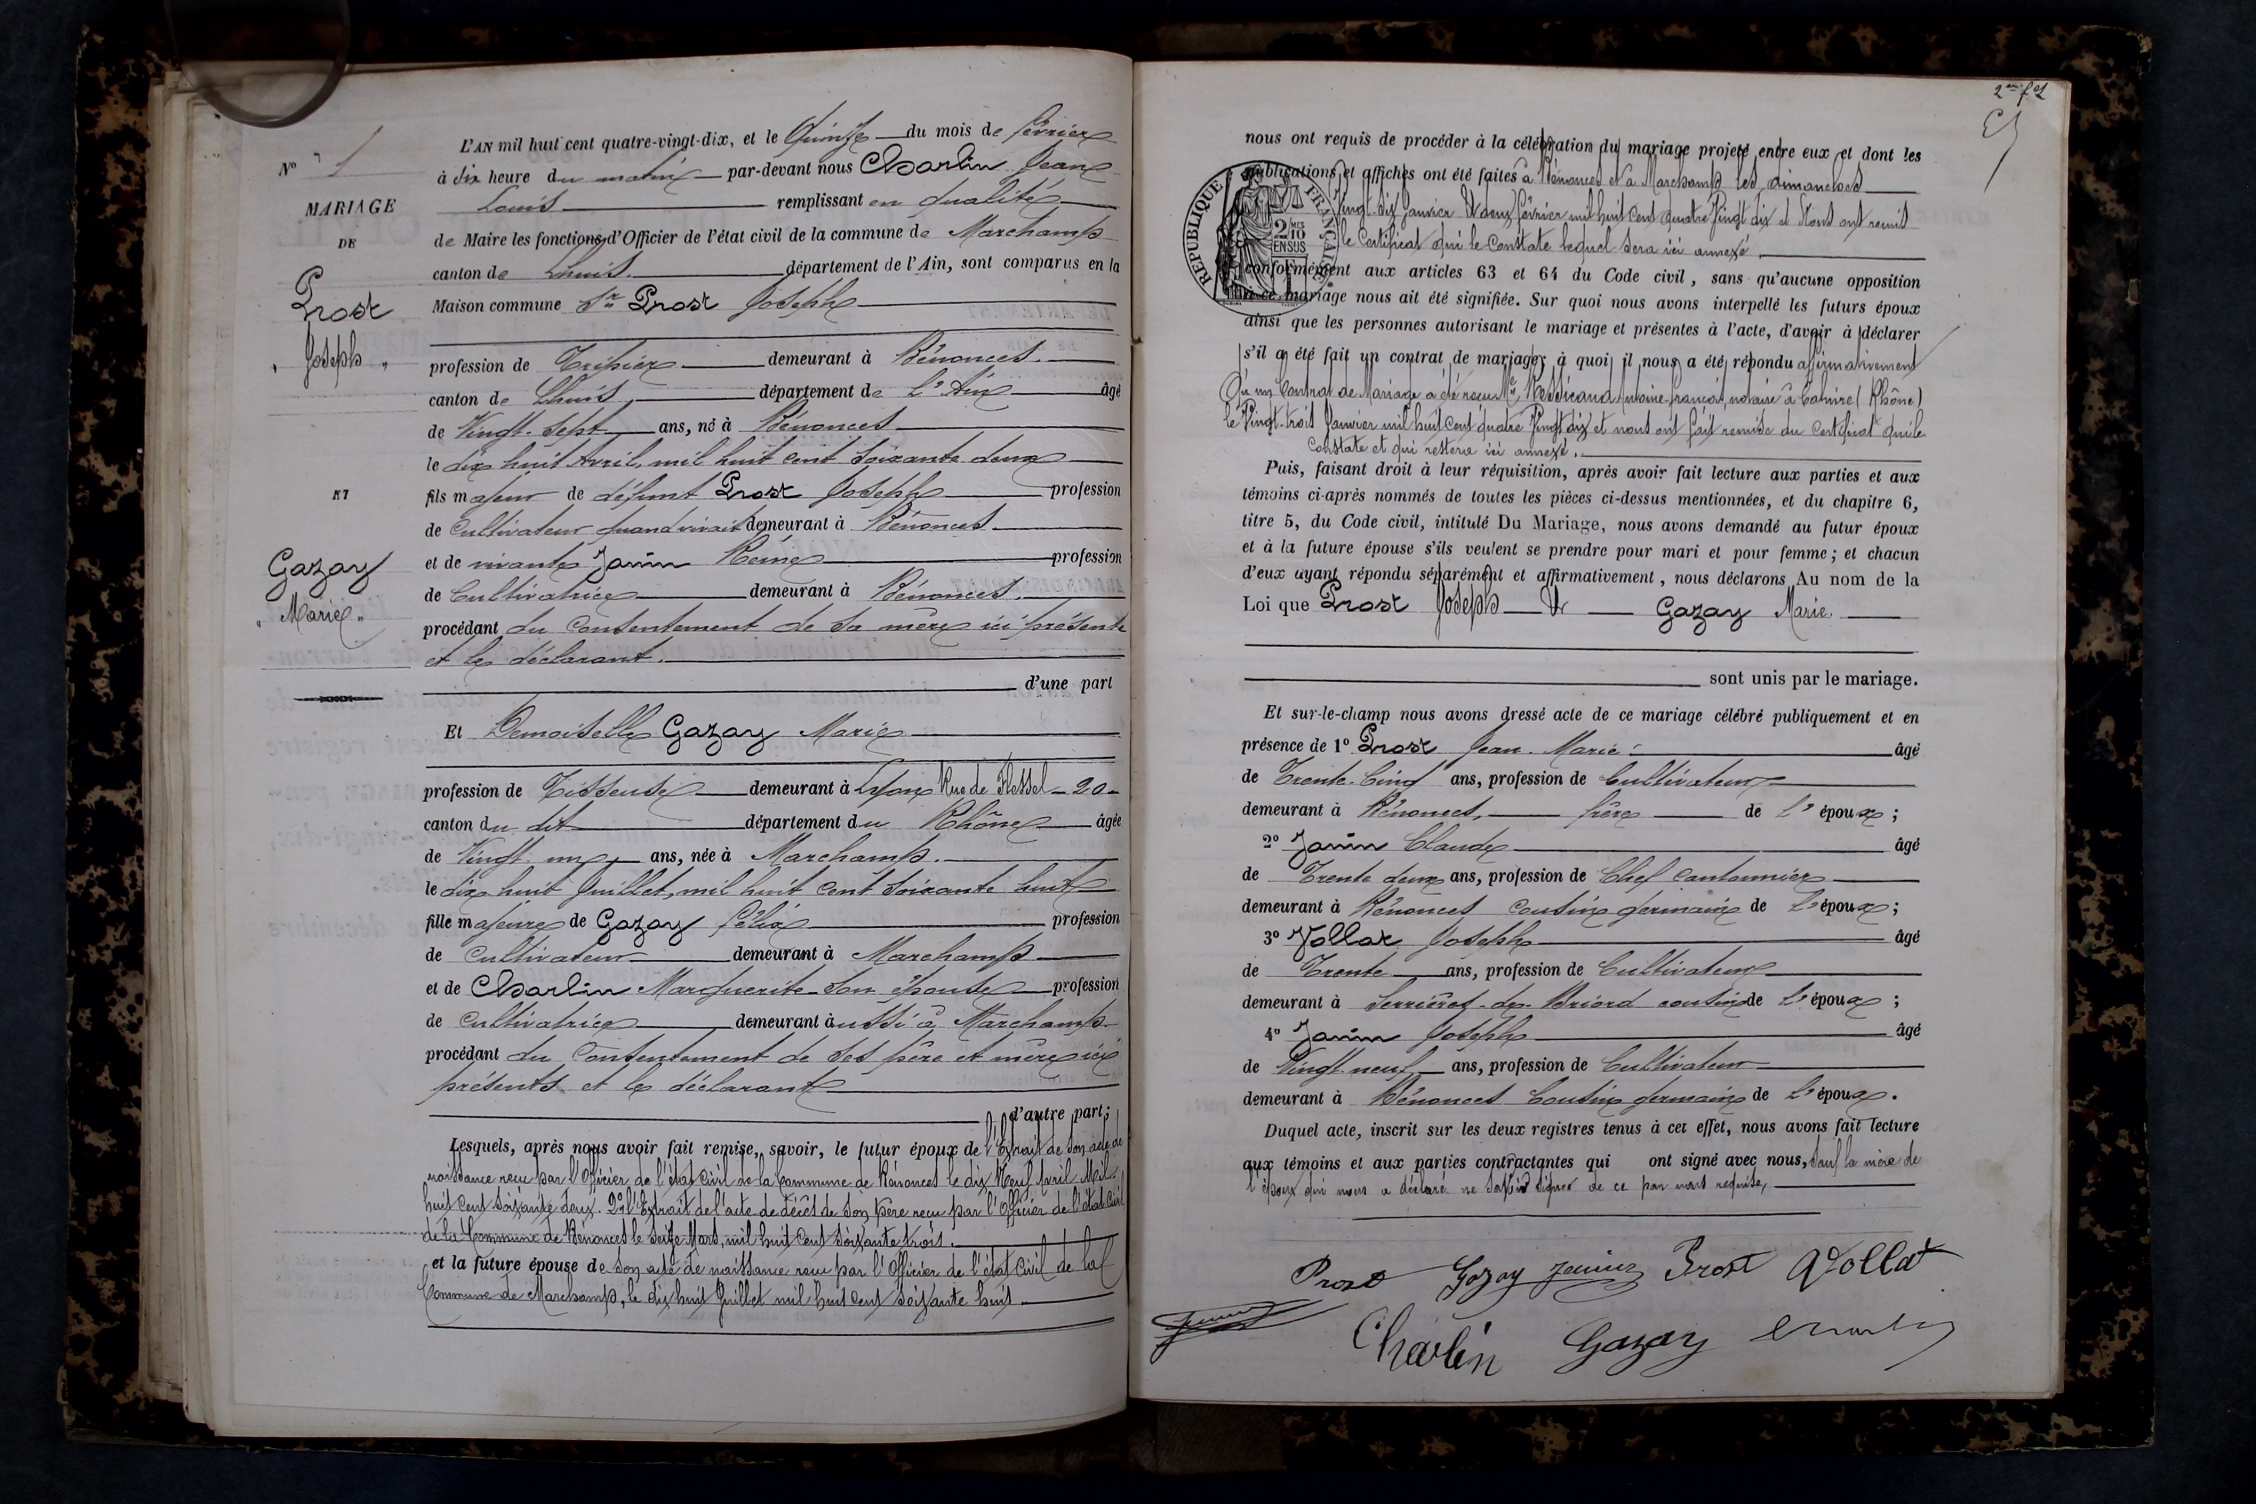 N° 1
MARIAGE
DE
Prost
" Joseph "
ET
Gazay
" Marie "
L'AN mil huit cent quatre-vingt-dix, et le Quinze du mois de février
à dix heure du matin par-devant nous Charlin Jean
Louis remplissant en qualité
de Maire les fonctions d'Officier de l'état civil de la commune de Marchamp
canton de Lhuis. département de l'Ain, sont comparus en la
Maison commune Sr Prost Joseph
profession de Tripier demeurant à Bénonces.
canton de Lhuis, département de l'Ain âgé
de Vingt-Sept ans, né à Bénonces
le dix huit Avril, mil huit cent soixante deux
fils majeur de défunt Prost Joseph profession
de Cultivateur quand vivait demeurant à Bénonces
et de vivante Janin Reine profession
de Cultivatrice demeurant à Bénonces.
procédant du Consentement de sa mère ici présente
et le déclarant.
d'une part
Et Demoiselle Gazay Marie
profession de Tisseuse demeurant à Lyon Rue de Flessel - 20 -
canton du dit département du Rhône âgée
de Vingt un ans, née à Marchamp.
le dix huit Juillet, mil huit cent soixante huit
fille majeure de Gazay félix profession
de Cultivateur demeurant à Marchamp
et de Charlin Marguerite son épouse profession
de Cultivatrice demeurant aussi à Marchamp
procédant du Consentement de ses père et mère ici
présents et le déclarant
d'autre part;
Lesquels, après nous avoir fait remise, savoir, le futur époux de l'Extrait de son acte de
naissance reçu par l'Officier de l'état civil de la Commune de Bénonces le dix Neuf Avril Mil-
huit Cent soixante deux. 2° l'Extrait de l'acte de décès de son père reçu par l'Officier de l'état civil
de la Commune de Bénonces le Seize Mars, mil huit Cent soixante trois.
et la future épouse de son acte de naissance reçu par l'Officier de l'état Civil de la
Commune de Marchamp, le dix huit Juillet mil huit cent soixante huit
2me fet
nous ont requis de procéder à la célébration du mariage projeté entre eux et dont les
publications et affiches ont été faites à Bénonces et à Marchamp les dimanches
Vingt-six Janvier & deux février mil huit Cent quatre Vingt dix et Nous ont remis
le Certificat qui le Constate lequel sera ici annexé
RÉPUBLIQUE FRANÇAISE
2 MES 10
EN SUS
conformément aux articles 63 et 64 du Code civil, sans qu'aucune opposition
à ce mariage nous ait été signifiée. Sur quoi nous avons interpellé les futurs époux
ainsi que les personnes autorisant le mariage et présentes à l'acte, d'avoir à déclarer
s'il a été fait un contrat de mariage; à quoi il nous a été répondu affirmativement
Qu'un Contrat de Mariage a été reçu Me Antoine françois, notaire à Caluire (Rhône)
le Vingt-trois Janvier mil huit Cent quatre Vingt dix et nous ont fait remise du Certificat qui le
Constate et qui restera ici annexé.
Puis, faisant droit à leur réquisition, après avoir fait lecture aux parties et aux
témoins ci-après nommés de toutes les pièces ci-dessus mentionnées, et du chapitre 6,
titre 5, du Code civil, intitulé Du Mariage, nous avons demandé au futur époux
et à la future épouse s'ils veulent se prendre pour mari et pour femme; et chacun
d'eux ayant répondu séparément et affirmativement, nous déclarons Au nom de la
Loi que Prost Joseph & Gazay Marie.
sont unis par le mariage.
Et sur-le-champ nous avons dressé acte de ce mariage célébré publiquement et en
présence de 1° Prost Jean-Marie âgé
de Trente-Cinq ans, profession de Cultivateur
demeurant à Bénonces, frère de l'époux;
2° Janin Claude âgé
de Trente deux ans, profession de Chef Cantonnier
demeurant à Bénonces Cousin germain de l'époux;
3° Vollat Joseph âgé
de Trente ans, profession de Cultivateur
demeurant à Serrières-de-Briord cousin de l'époux;
4° Janin Joseph âgé
de Vingt neuf ans, profession de Cultivateur
demeurant à Bénonces Cousin germain de l'époux.
Duquel acte, inscrit sur les deux registres tenus à cet effet, nous avons fait lecture
aux témoins et aux parties contractantes qui ont signé avec nous, sauf la mère de
l'époux qui nous a déclaré ne savoir signer de ce par nous requise,
Prost Gazay Janin Prost Vollat
Janin Charlin Gazay Charlin